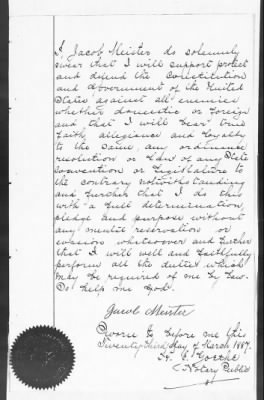 I Jacob Meister do solemnly
swear that I will support protect
and defend the Constitution
and Government of the United
States against all enemies
whether domestic or foreign
and that I will bear true
faith allegiance and loyalty
to the same any ordinance
resolution or Law of any State
convention or Legislature to
the contrary notwithstanding
and further that I do this
with a full determination
pledge and purpose without
any mental reservation or
evasion whatsoever and further
that I will well and faithfully
perform all the duties which
may be required of me by Law.
So help me God.
Jacob Meister
Sworn to before me this
Twenty third day of March 1887.
Notary Public